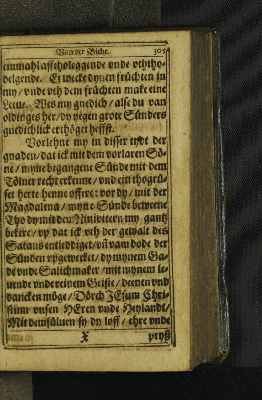 Van der Bichte. 305
einmahl afftholeggende vnde vththo-
delgende. Erwecke dynen früchten in
my / vnde veh dem früchten make eine
Leeue. Wes my gnedich / alse du van
oldinges her / dy yegen grote Sünders
gnedichlick ertöget heffst.
Vorlehne my in disser tydt der
gnaden / dat ick mit dem vorlaren Sö-
ne / myne begangene Sünde mit dem
Tölner recht erkenne / vnd ein thogrü-
set herte henne offere: vor dy / mit der
Magdalena / myne Sünde bewene
Tho dy mit den Ninivitern my gantz
bekere / vp dat ick veh der gewalt des
Satans entlediget / vñ vam dode der
Sünden vpgewecket / dy mynem Ga-
de vnde Salichmaker / mit mynem le-
uende vnde reinem Geiste / deenen vnd
dancken möge / Dörch JEsum Chri-
stum vnsen HEren vnde Heylandt /
Mit dem süluen sy dy loff / ehre vnde
X pryß